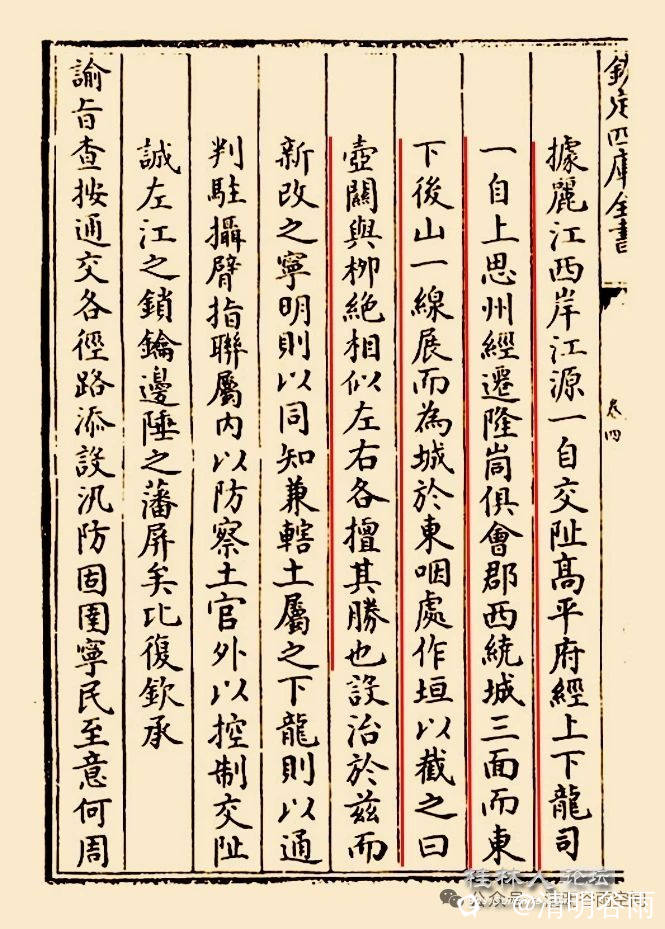 欽定四庫全書
卷四
據麗江西岸江源一自交阯髙平府經上下龍司
一自上思州經遷隆峝俱會郡西統城三面而東
下後山一線展而為城於東咽處作垣以截之曰
壺關與栁絶相似左右各擅其勝也設治於兹而
新改之寧明則以同知兼轄土屬之下龍則以通
判駐攝臂指聯屬内以防察土官外以控制交阯
誠左江之鎖鑰邊陲之藩屏矣比復欽承
諭㫖查按通交各徑路添設汛防固圉寧民至意何周
桂林人论坛
公众号
@清明谷雨